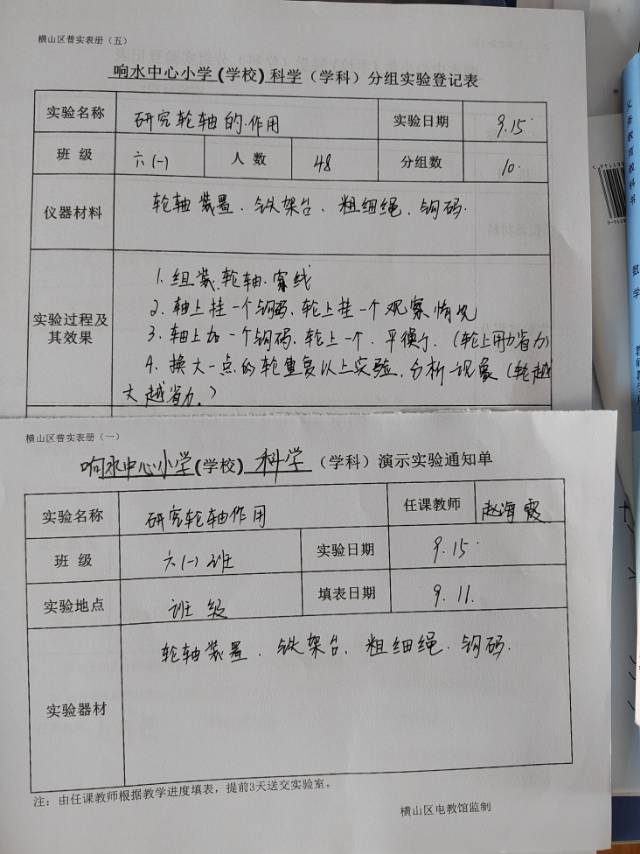 横山区普实表册（五）
响水中心小学（学校）科学（学科）分组实验登记表
实验名称 研究轮轴的作用 实验日期 9.15.
班 级 六（一） 人 数 48 分组数 10.
仪器材料 轮轴装置．铁架台．粗细绳．钩码．
实验过程及其效果
1. 组装轮轴．穿线
2. 轴上挂一个钩码，轮上挂一个观察情况
3. 轴上加一个钩码，轮上一个．平衡了．（轮上用力省力）
4. 换大一点的轮重复以上实验．分析现象（轮越
大越省力．）
横山区普实表册（一）
响水中心小学（学校）科学（学科）演示实验通知单
实验名称 研究轮轴作用 任课教师 赵海霞
班 级 六（一）班 实验日期 9.15.
实验地点 班级 填表日期 9.11.
实验器材 轮轴装置．铁架台．粗细绳．钩码．
注：由任课教师根据教学进度填表，提前3天送交实验室。
横山区电教馆监制
义务教育教科书
数学